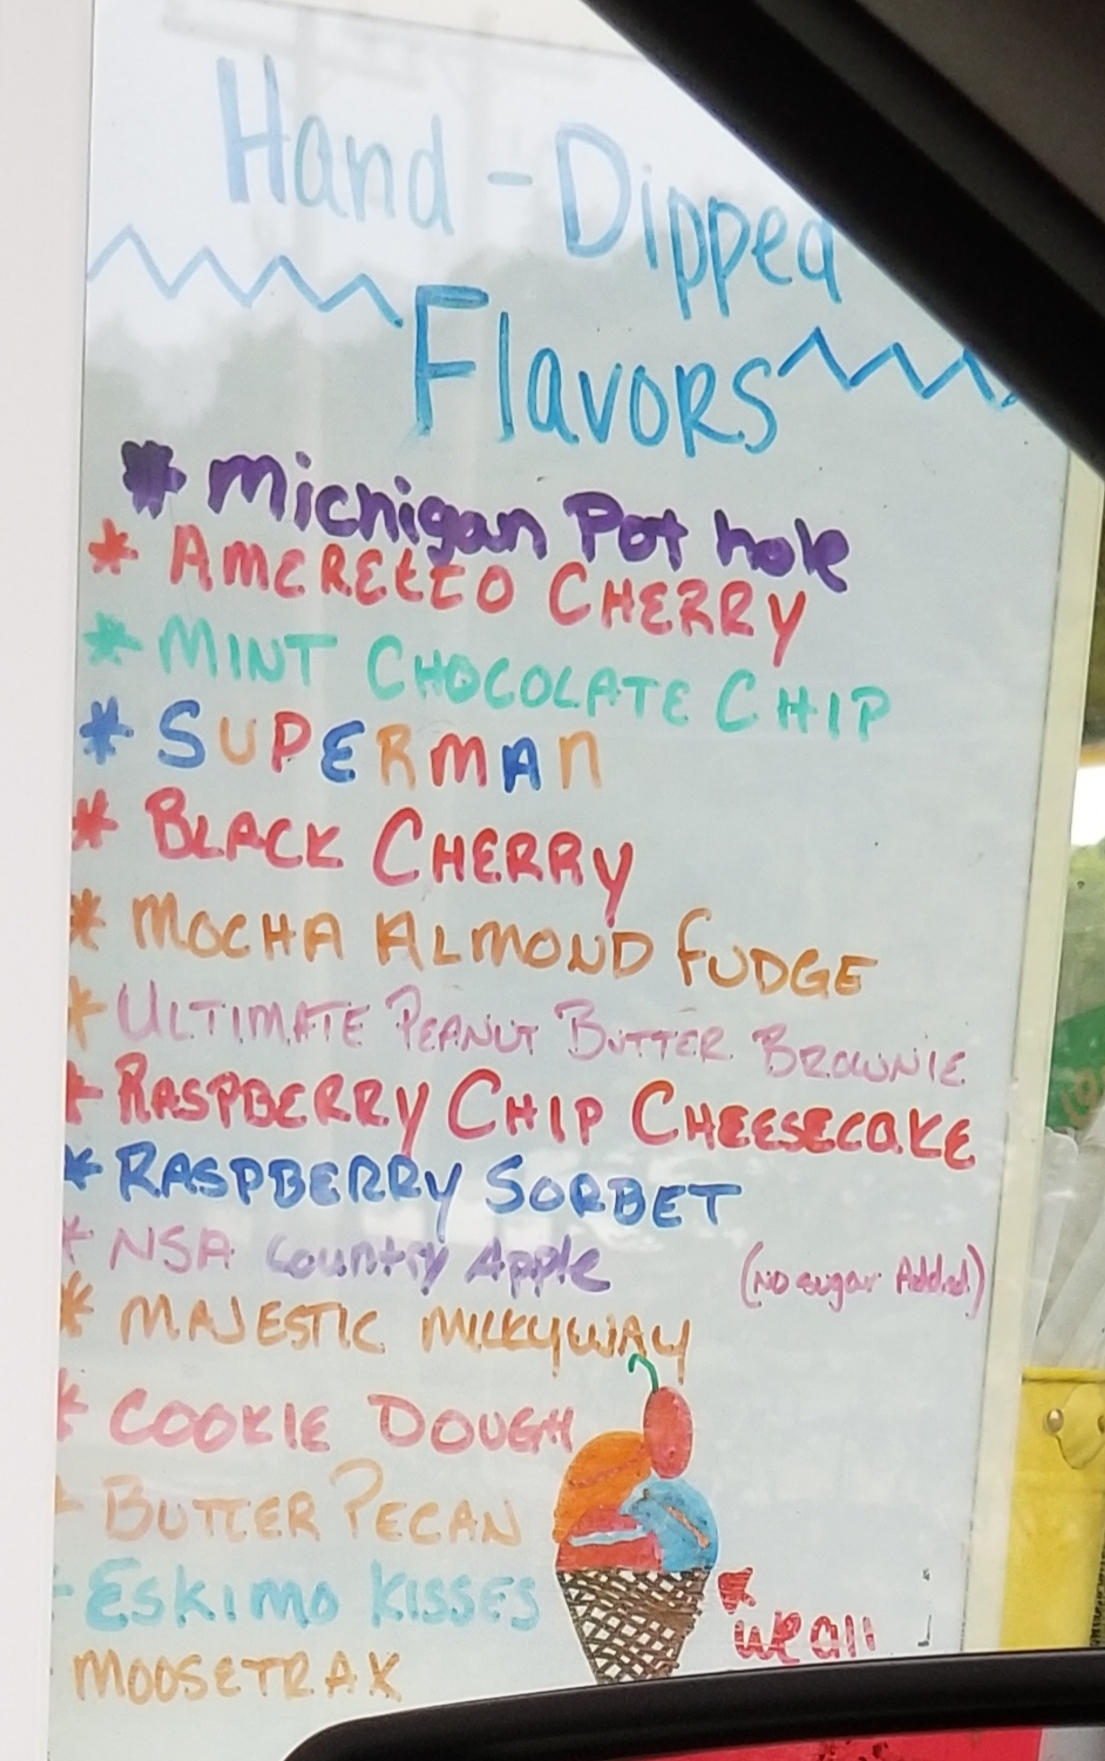 Hand-Dipped
Flavors
* Michigan Pot hole
* AMERETTO CHERRY
* MINT CHOCOLATE CHIP
* SUPERMAN
* BLACK CHERRY
* MOCHA ALMOND FUDGE
* ULTIMATE PEANUT BUTTER BROWNIE
* RASPBERRY CHIP CHEESECAKE
* RASPBERRY SORBET
* NSA Country Apple (No sugar Added)
* MAJESTIC MILKYWAY
* COOKIE DOUGH
* BUTTER PECAN
* ESKIMO KISSES
MOOSETRAX
we all